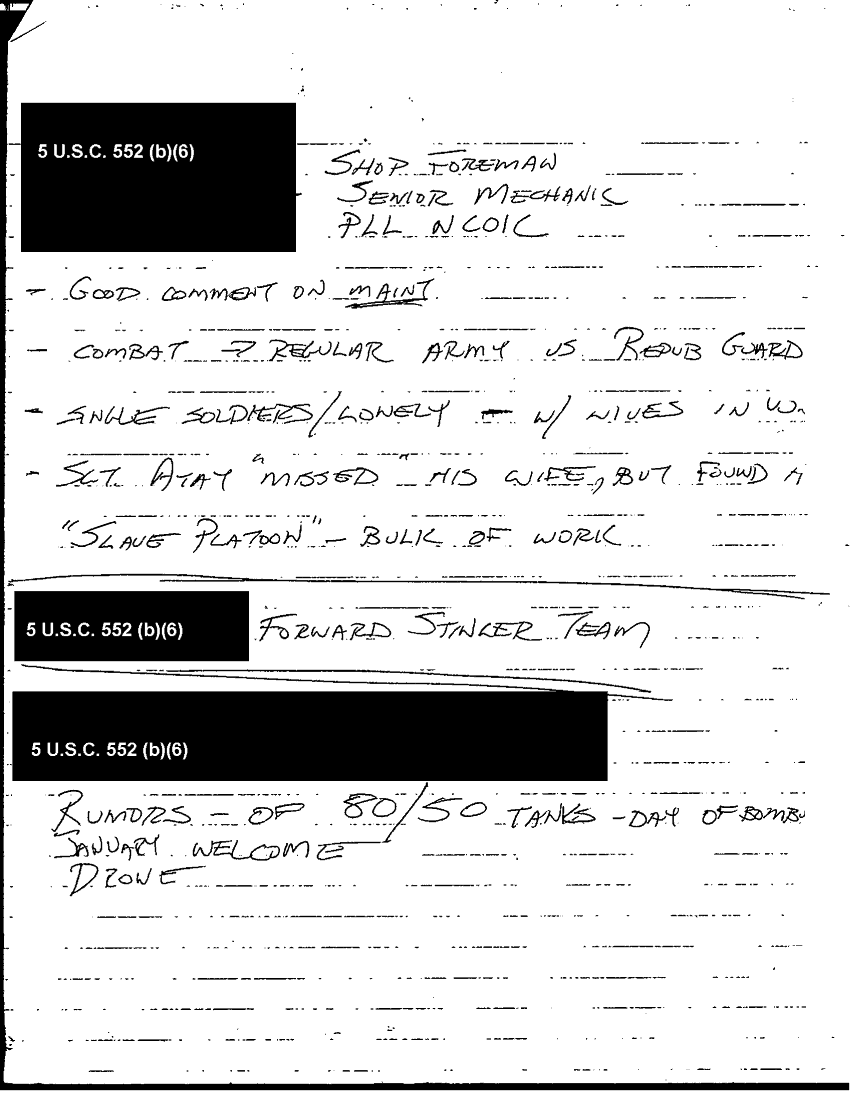 5 U.S.C. 552 (b)(6)
SHOP FOREMAN
SENIOR MECHANIC
PLL NCOIC
- GOOD COMMENT ON MAINT.
- COMBAT → REGULAR ARMY VS REPUB GUARD
- SINGLE SOLDIERS/LONELY - W/ WIVES IN
- SGT. ATAY "MISSED" HIS WIFE, BUT FOUND A
"SLAVE PLATOON" - BULK OF WORK
5 U.S.C. 552 (b)(6) FORWARD STINGER TEAM
5 U.S.C. 552 (b)(6)
RUMORS - OF 80/50 TANKS - DAY OF
JANUARY WELCOME
DRONE